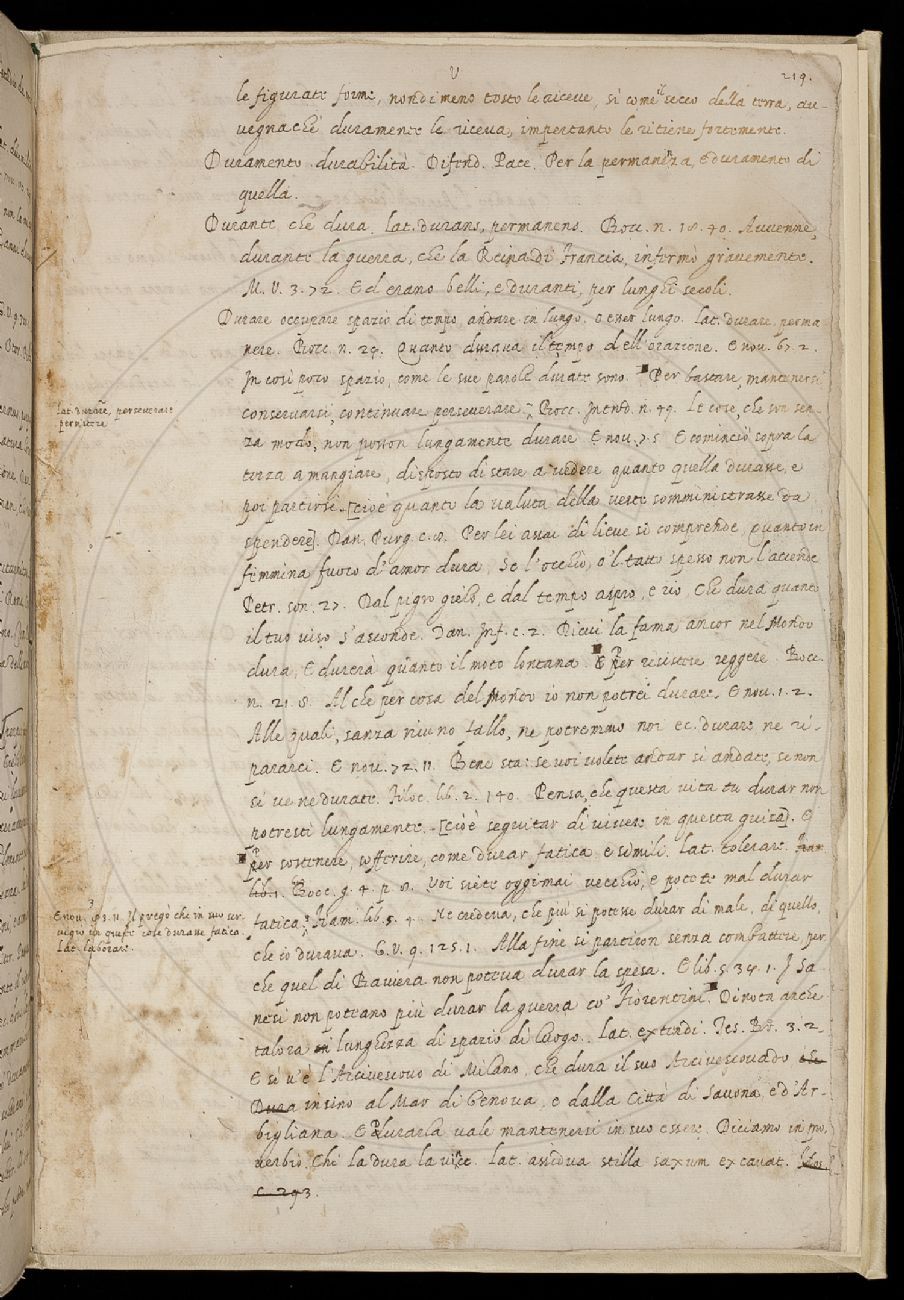 V
219.
le figurate forme, nondimeno tosto le riceve, sì come il secco della terra, av-
vegnachè duramente le riceva, impertanto le ritiene fortemente.
Duramento. durabilità. Difend. Pace. Per la permanenza, e duramento di
quella.
Durante. che dura. lat. durans, permanens. Bocc. n. 18. 40. Avvenne,
durante la guerra, che la Reina di Francia, infermò gravemente.
M. V. 3. 72. Ed erano belli, e duranti, per lunghi secoli.
Durare occupare spazio di tempo, andare in lungo. esser lungo. lat. durare, perma
nere. Bocc. n. 29. Quanto durava il tempo dell'orazione. E nov. 67. 2.
In così poco spazio, come le sue parole durate sono. Per bastare, mantenersi
lat. durare, perseverare
permanere
conservarsi, continuare perseverare. Bocc. Introd. n. 49. Le cose, che son sen-
za modo, non posson lungamente durare E nov. 7. 5. E cominciò sopra la
terza a mangiare, disposto di stare a vedere quanto quella durasse, e
poi partirsi [cioè quanto la valuta della veste somministrasse da
spendere]. Dan. Purg. c. 8. Per lei assai di lieve si comprende, Quanto in
femmina fuoco d'amor dura, Se l'occhio, o 'l tatto spesso non l'accende
Petr. son. 27. Dal pigro gielo, e dal tempo aspro, e rio, Che dura quanto
il tuo viso s'asconde. Dan. Inf. c. 2. Di cui la fama ancor nel Mondo
dura, E durerà quanto il moto lontana. E per resistere reggere. Bocc.
n. 21. 8. Al che per cosa del Mondo io non potrei durare. E nov. 1. 2.
Alle quali, sanza niuno fallo, ne potremmo noi ec. durare ne ri-
pararci. E nov. 72. 11. Bene sta: se voi volete andar sì andate, se non
sì ve ne durate. Filoc. lib. 2. 140. Pensa, che questa vita tu durar non
potresti lungamente. [cioè seguitar di vivere in questa guisa]. E
per sostenere, sofferire, come durar fatica, e simili. lat. tolerare.
lib. 1. Bocc. g. 4. p. 8. Voi siete oggimai vecchio, e potete mal durar
E nov. 93. 11. Il pregò che in suo ser-
vigio in queste cose durasse fatica.
lat. laborare.
fatica; lib. 5. 4. Ne credeva, che più si potesse durar di male, di quello,
che io durava. G. V. 9. 125. 1. Alla fine si partiron senza combattere, per
che quel di Baviera non poteva durar la spesa. E lib. 5. 34. 1. I Sa
nesi non potrano più durar la guerra co' Fiorentini. Dinota anche
talora lunghezza di spazio di luogo. lat. extendi. Tes. Br. 3. 2.
E sì v'è l'Arcivescovo di Milano, che dura il suo Arcivescovado
Dura insino al Mar di Genova, e dalla Città di Savona, e d'Ar-
bigliana. E durarla vale mantenersi in suo essere. Diciamo in pro
verbio. Chi la dura la vince. lat. assidua stilla saxum excavat.
c. 293.